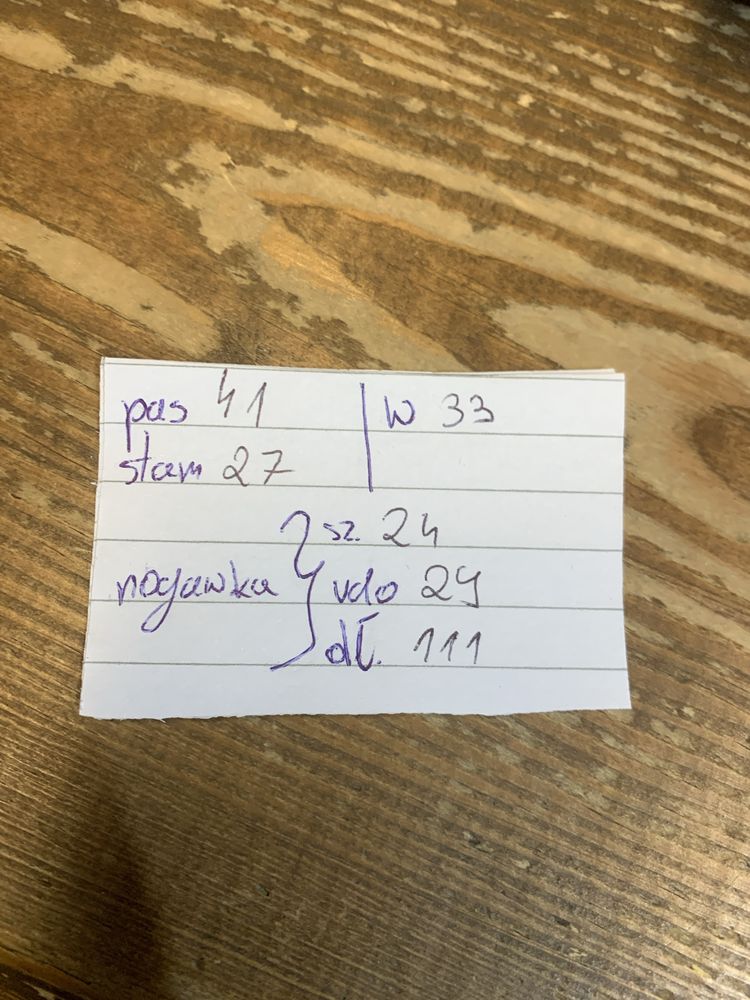 pas 41 | W 33
stan 27
nogawka { sz. 24
udo 29
dł. 111